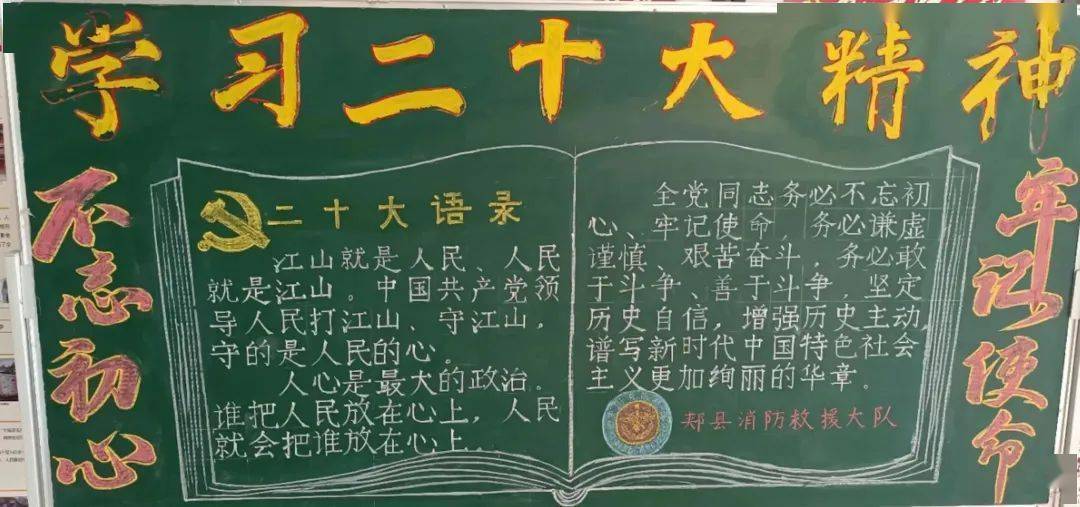 学习二十大精神
不忘初心
二十大语录
江山就是人民、人民
就是江山。中国共产党领
导人民打江山、守江山，
守的是人民的心。
人心是最大的政治。
谁把人民放在心上，人民
就会把谁放在心上...
全党同志务必不忘初
心、牢记使命，务必谦虚
谨慎、艰苦奋斗，务必敢
于斗争、善于斗争，坚定
历史自信，增强历史主动，
谱写新时代中国特色社会
主义更加绚丽的华章。
郏县消防救援大队
牢记使命